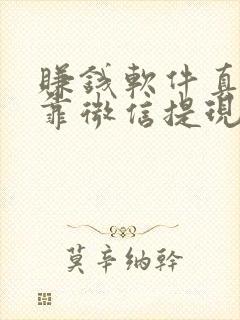 賺錢軟件真
靠微信提現
莫辛纳幹